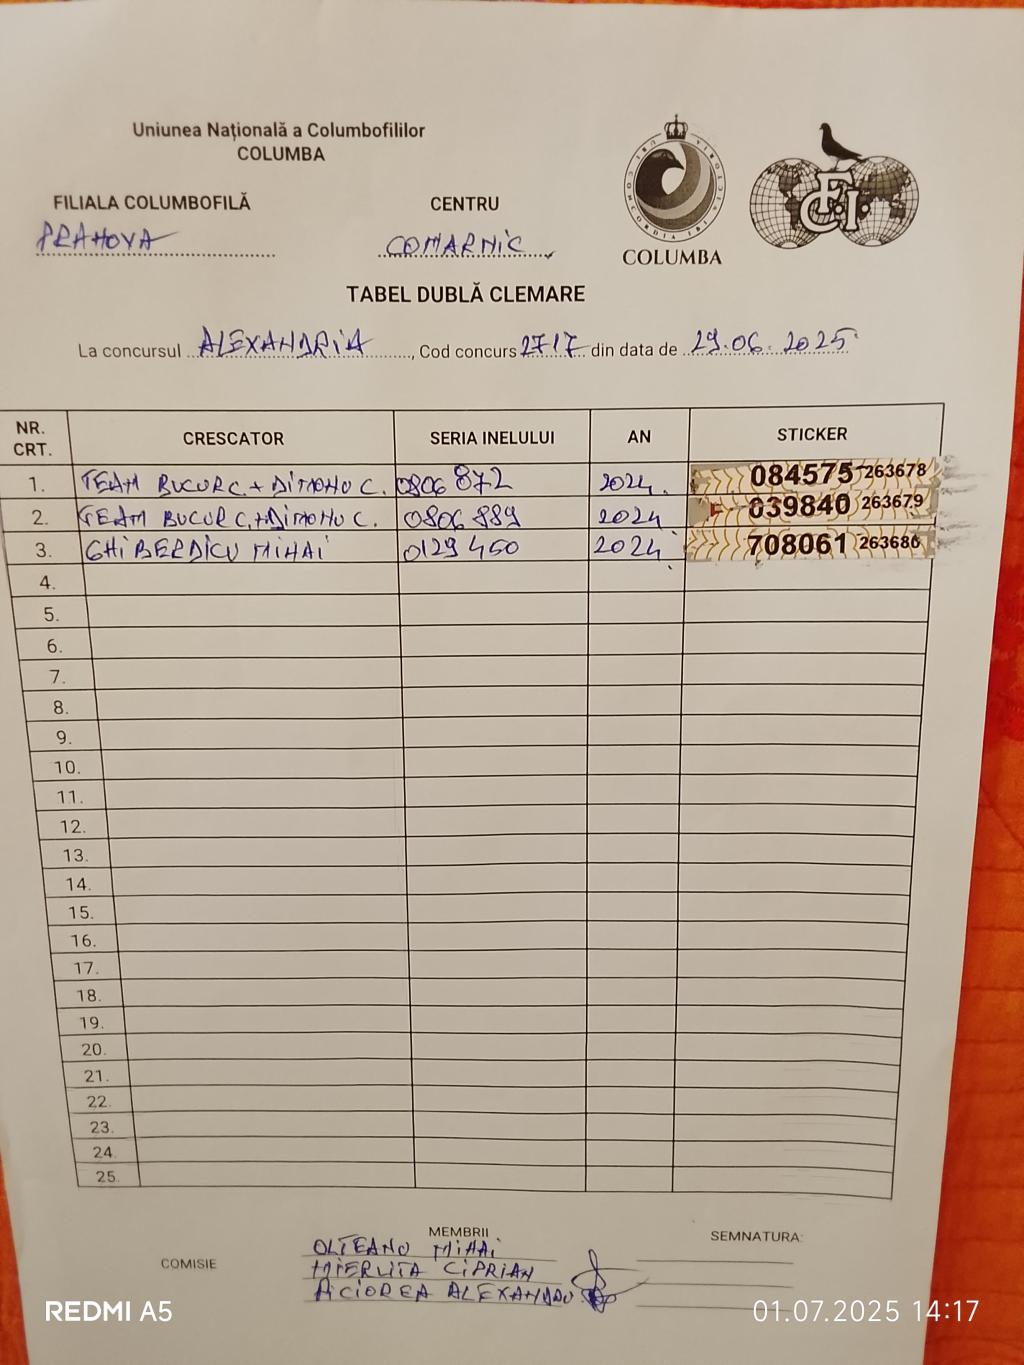 Uniunea Națională a Columbofililor
COLUMBA
FILIALA COLUMBOFILĂ
PRAHOVA
CENTRU
COMARNIC
COLUMBA
FCI
TABEL DUBLĂ CLEMARE
La concursul ALEXANDRIA, Cod concurs 2717 din data de 29.06.2025
NR. CRT. CRESCATOR SERIA INELULUI AN STICKER
1. TEAM BUCUR C.+DIMOHU C. 0806872 2024. 084575 263678
2. TEAM BUCUR C.+DIMOHU C. 0806889 2024 039840 263679
3. GHIBERDICU MIHAI 0129450 2024 708061 263680
4.
5.
6.
7.
8.
9.
10.
11.
12.
13.
14.
15.
16.
17.
18.
19.
20.
21.
22.
23.
24.
25.
COMISIE
MEMBRII
SEMNATURA:
OLTEANU MIHAI
MIERLITA CIPRIAN
PICIOREA ALEXANDRU
REDMI A5
01.07.2025 14:17